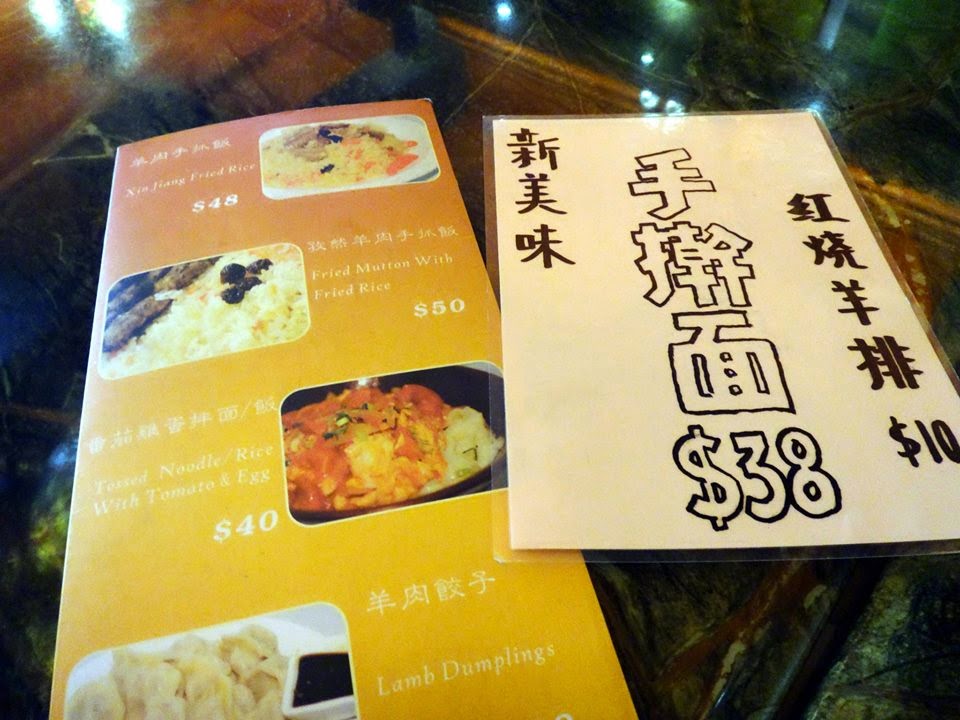 羊肉手抓飯
Xin Jiang Fried Rice
$48
孜然羊肉手抓飯
Fried Mutton With
Fried Rice
$50
番茄雞蛋拌面/飯
Tossed Noodle/Rice
With Tomato & Egg
$40
羊肉餃子
Lamb Dumplings
新美味
手擀面
$38
红烧羊排